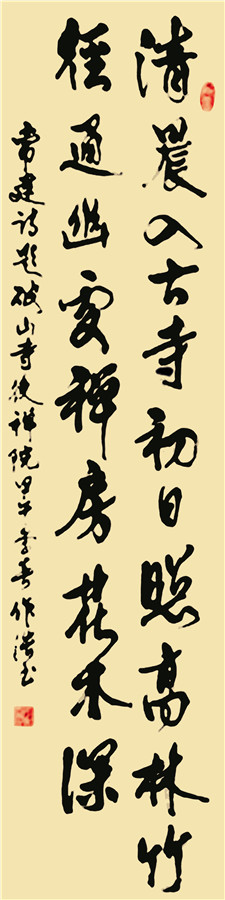 清晨入古寺初日照高林竹
徑通幽處禪房花木深
常建詩題破山寺後禪院甲午季春作浩書